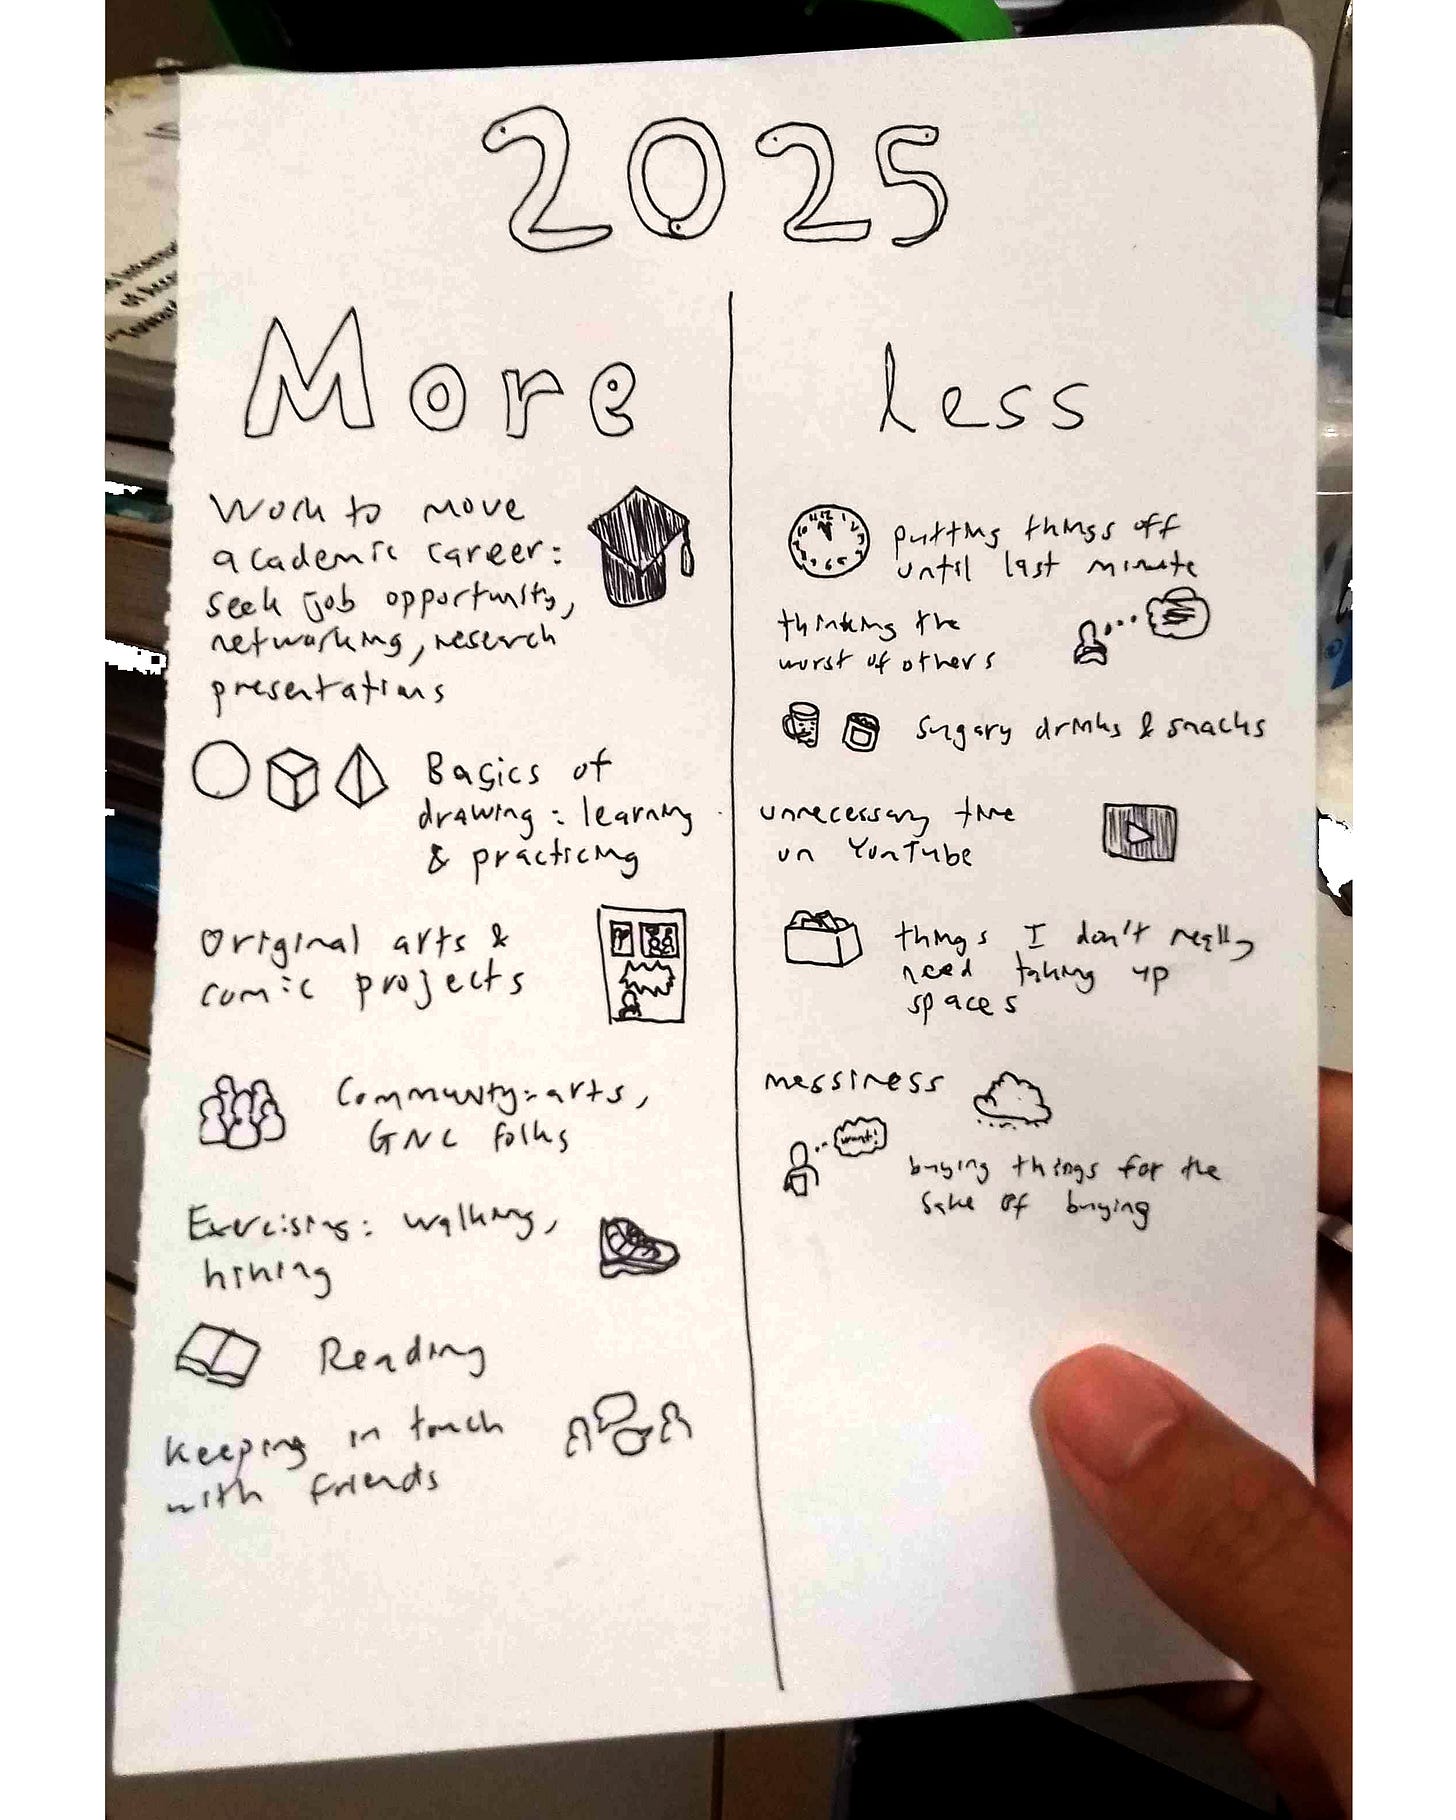 2025
More
Work to move
academic career:
seek job opportunity,
networking, research
presentations
Basics of
drawing: learning
& practicing
Original arts &
comic projects
Community: arts,
GNC folks
Exercising: walking,
hiking
Reading
Keeping in touch
with friends
less
putting things off
until last minute
thinking the
worst of others
sugary drinks & snacks
unnecessary time
on YouTube
things I don't really
need taking up
spaces
messiness
want!
buying things for the
sake of buying